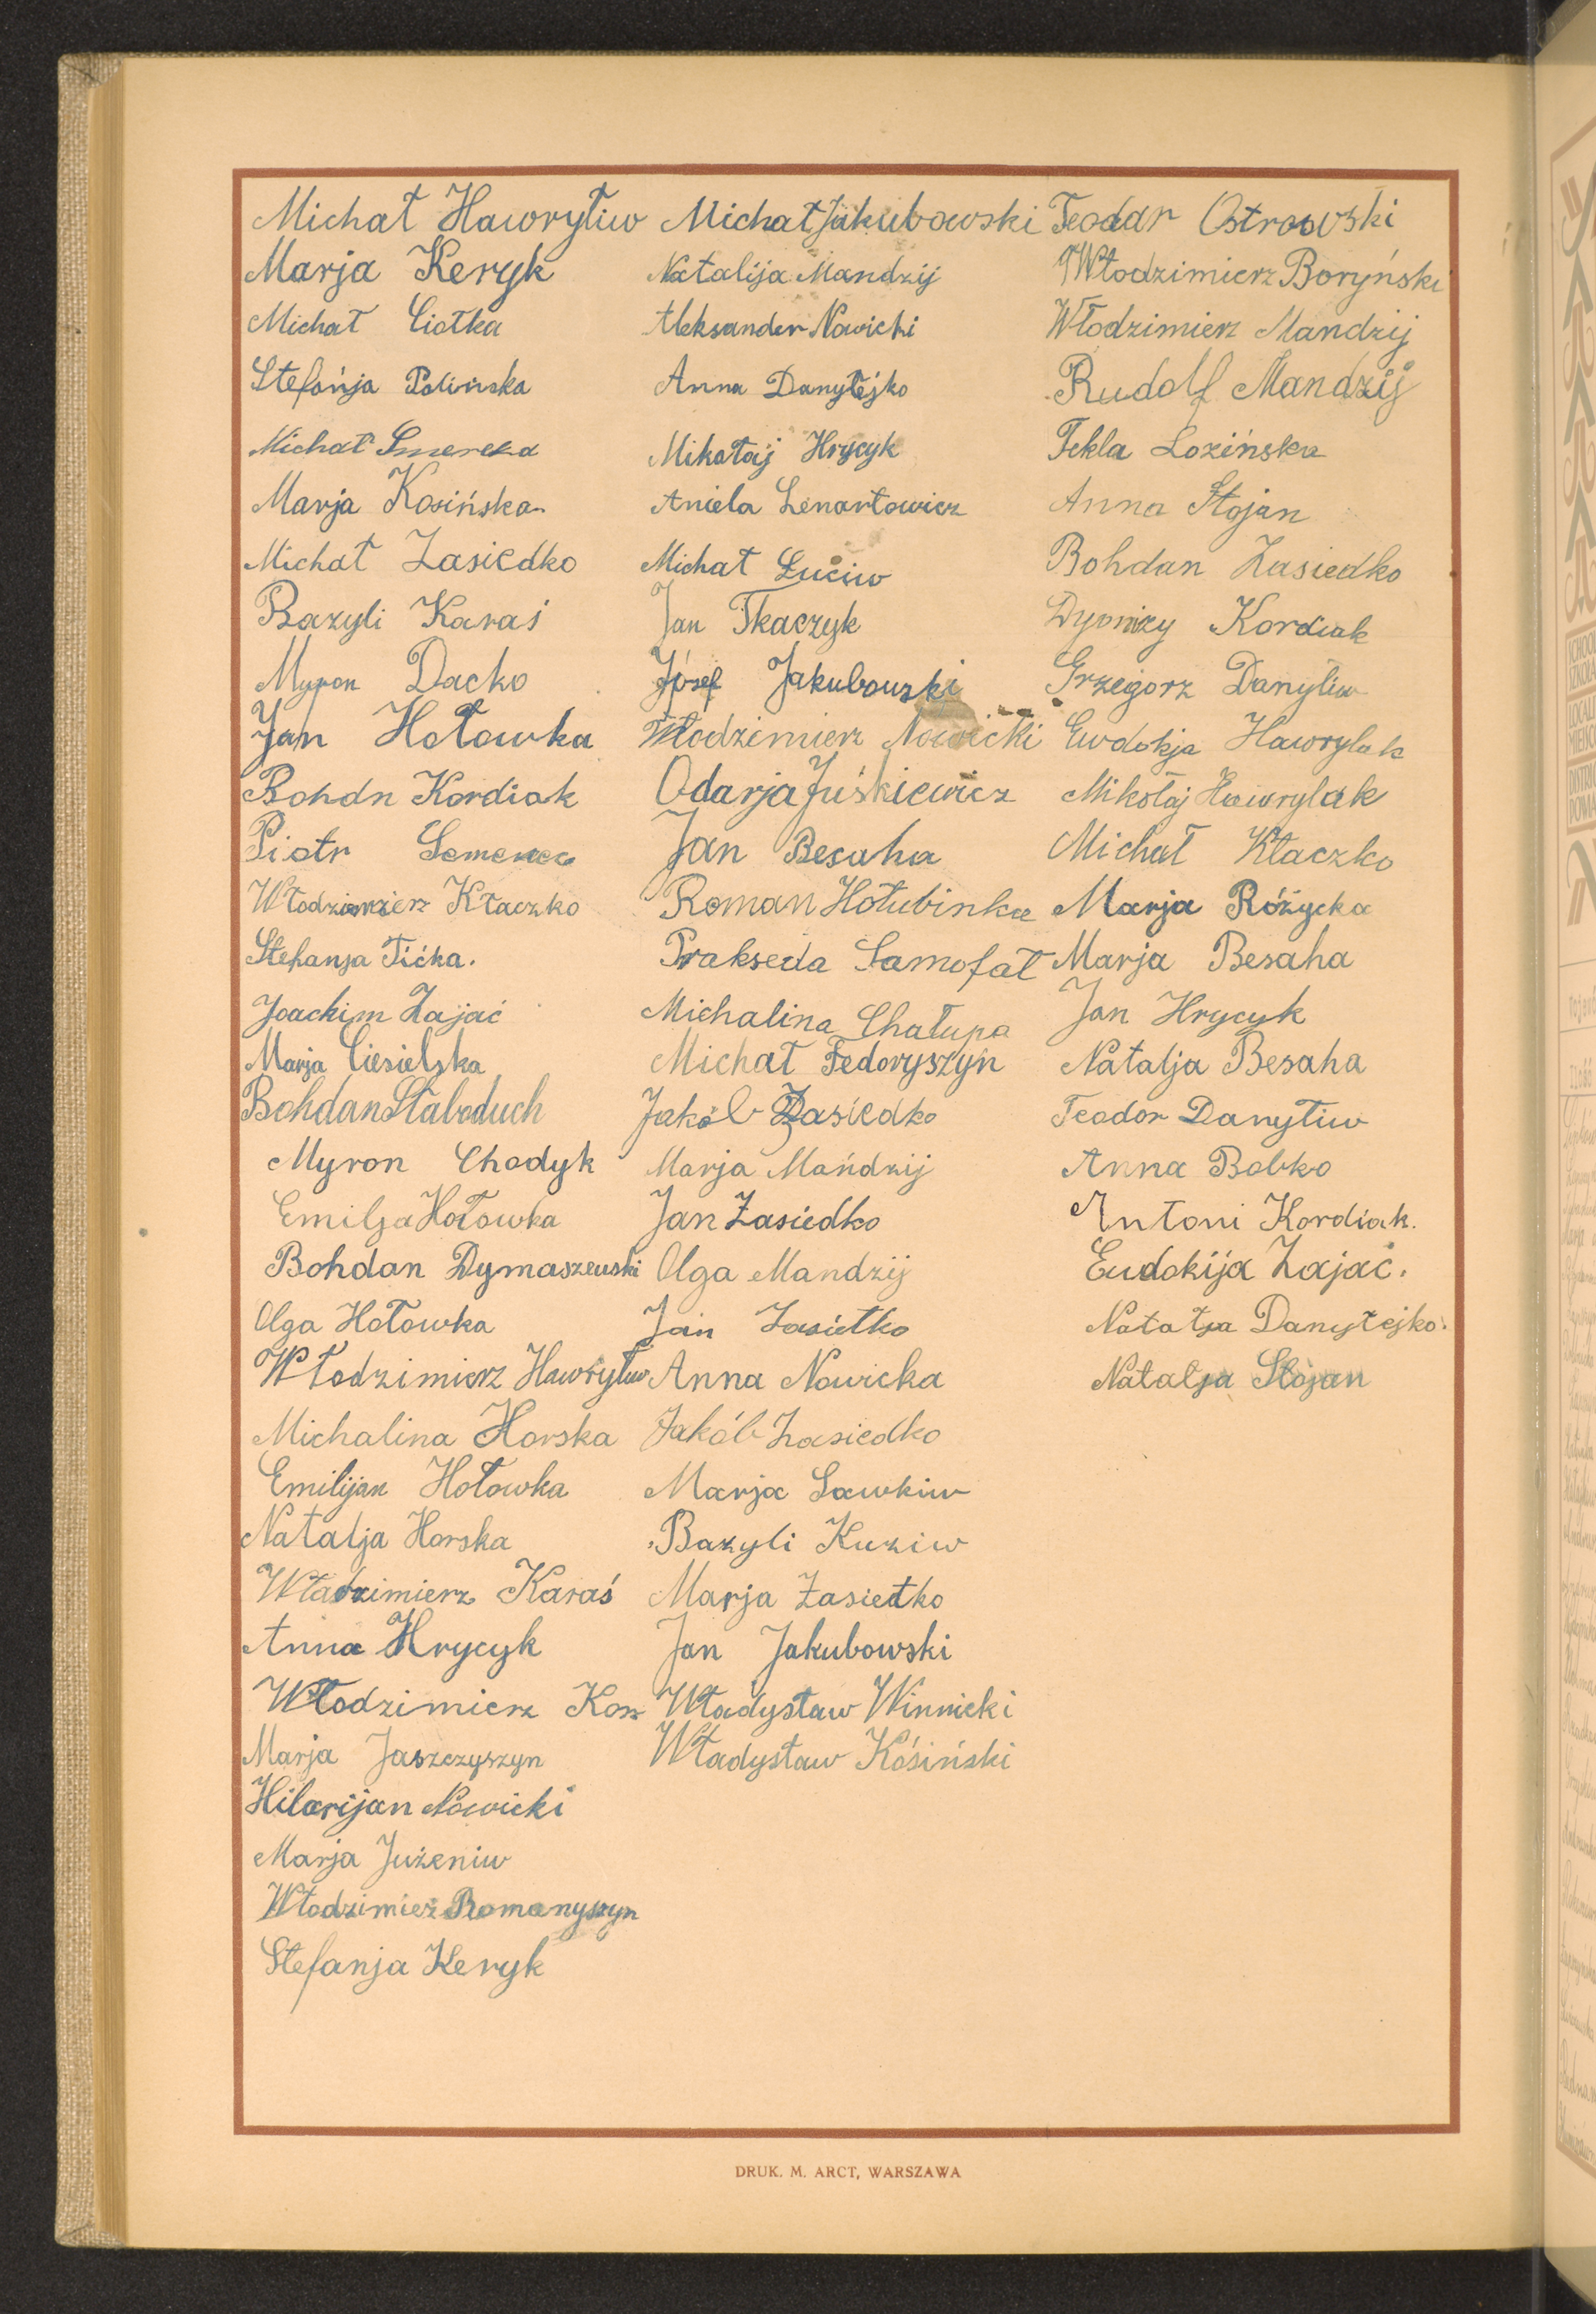 Michał Hawryłiw
Marja Keryk
Michał Ciotka
Stefańja Polińska
Michał Smereka
Marja Kosińska
Michał Zasiedko
Bazyli Karaś
Myron Dacko
Jan Hołowka
Bohdn Kordiak
Piotr
Włodzimierz Kłaczko
Stefanja Tićka.
Joachim Zająć
Marja Ciesielska
Bohdan Słaboduch
Myron Chodyk
Emilja Hołowka
Bohdan Dymaszewski
Olga Hołowka
Włodzimierz Hawryłiw
Michalina Horska
Emilijan Hołowka
Natalja Horska
Władzimierz Karaś
Anna Hrycyk
Włodzimierz Kosz
Marja Jaszczyszyn
Hilarijan Nowicki
Marja Jużeniw
Włodzimież Romanyszyn
Stefanja Keryk
Michał Jakubowski
Natalija Mandzij
Aleksander Nowicki
Anna Danyłejko
Mikołaj Hrycyk
Aniela Lenartowicz
Michał Łuciw
Jan Tkaczyk
Józef Jakubowski
Włodzimierz Nowicki
Odarja Juśkiewicz
Jan Besaha
Roman Hołubinka
Prakseda Samofał
Michalina Chałupa
Michał Fedoryszyn
Jakób Zasiedko
Marja Mańdzij
Jan Zasiedko
Olga Mandzij
Jan Zasietko
Anna Nowicka
Jakób Zasiedko
Marja Sawkiw
Bazyli Kuziw
Marja Zasietko
Jan Jakubowski
Władysław Winnicki
Władysław Kośiński
Teodor Ostrowski
Włodzimierz Boryński
Włodzimierz Mandzij
Rudolf Mandzij
Tekla Łozińska
Anna Stojan
Bohdan Zasiedko
Dyonizy Kordiak
Grzegorz Danyliw
Ewdokja Hawrylak
Mikołaj Hawrylak
Michał Kłaczko
Marja Różycka
Marja Besaha
Jan Hrycyk
Natalja Besaha
Teodor Danyłiw
Anna Bobko
Antoni Kordiak.
Eudokija Zając.
Natalja Danyłejko.
Natalja Stojan
DRUK. M. ARCT, WARSZAWA